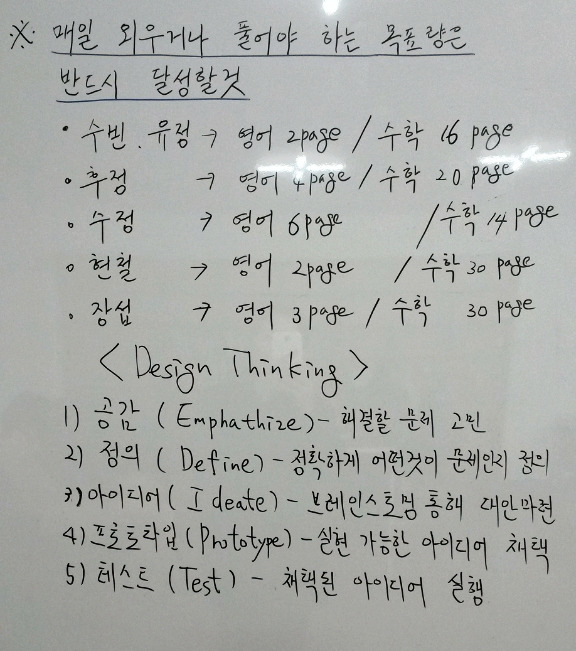 ※ 매일 외우거나 풀어야 하는 목표량은
반드시 달성할것
• 수빈.유정 → 영어 2page / 수학 16 page
• 후정 → 영어 4page / 수학 20 page
• 수정 → 영어 6page / 수학 14 page
• 현철 → 영어 2page / 수학 30 page
• 장섭 → 영어 3page / 수학 30 page
<Design Thinking>
1) 공감 (Emphathize) - 해결할 문제 고민
2) 정의 (Define) - 정확하게 어떤것이 문제인지 정의
3) 아이디어 (Ideate) - 브레인스토밍 통해 대안마련
4) 프로토타입 (Prototype) - 실현 가능한 아이디어 채택
5) 테스트 (Test) - 채택된 아이디어 실행